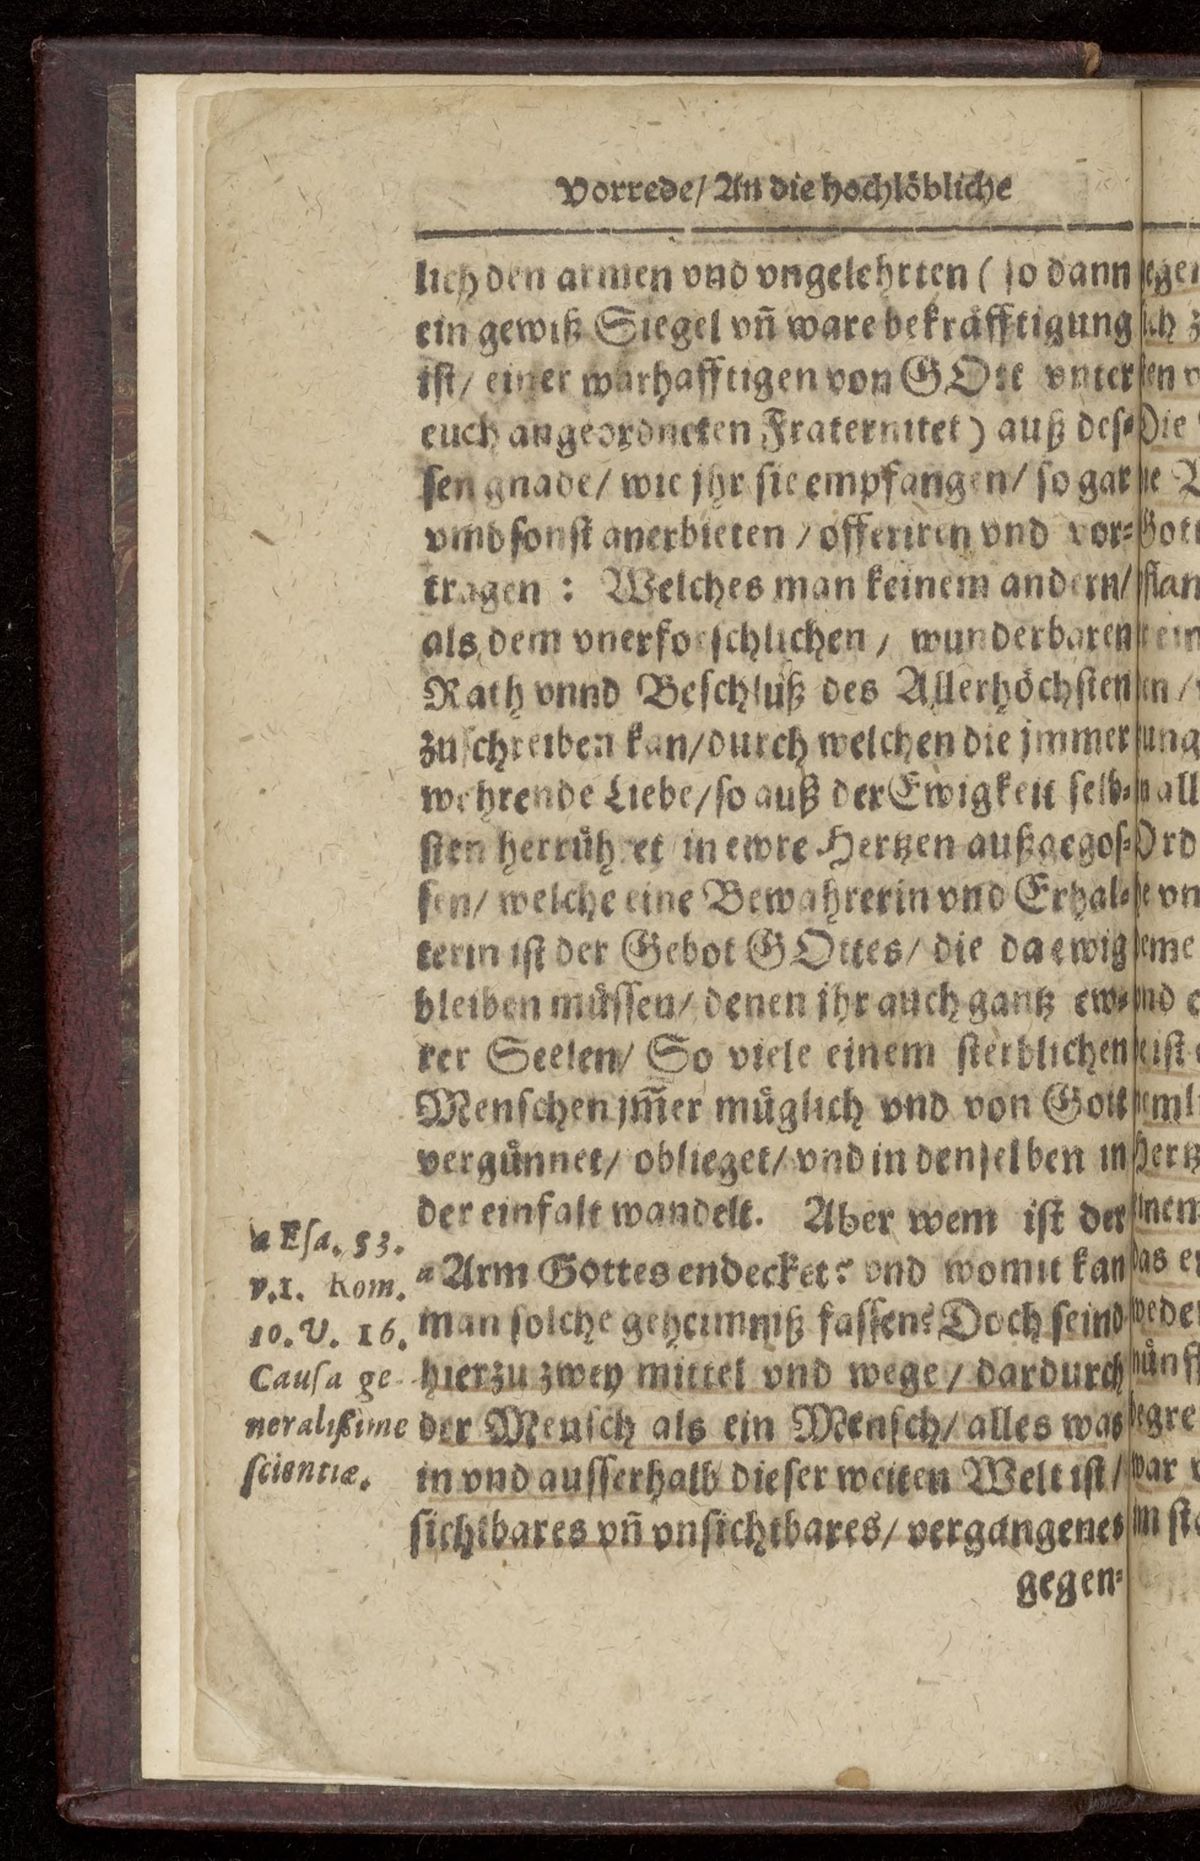 Vorrede/ An die hochlöbliche
lich den armen vnd vngelehrten ( so dann
ein gewiß Siegel vñ ware bekräfftigung
ist/ einer warhafftigen von GOtt vnter
euch angeordneten Fraternitet) auß des-
sen gnade/ wie jhr sie empfangen/ so gar
vmb sonst anerbieten / offeriren vnd vor-
tragen : Welches man keinem andern/
als dem vnerforschlichen / wunderbaren
Rath vnnd Beschluß des Allerhöchsten
zuschreiben kan/durch welchen die jmmer
wehrende Liebe/so auß der Ewigkeit selb-
sten herrühret in ewre Hertzen außgegos-
sen/ welche eine Bewahrerin vnd Erhal-
terin ist der Gebot GOttes/ die da ewig
bleiben müssen/ denen jhr auch gantz ew-
rer Seelen/ So viele einem sterblichen
Menschen jm̃er müglich vnd von Gott
vergünnet/ oblieget/ vnd in denselben in
der einfalt wandelt. Aber wem ist der
a Arm Gottes endecket? vnd womit kan
man solche geheimniß fassen? Doch seind
hierzu zwey mittel vnd wege / dardurch
der Mensch als ein Mensch/ alles was
in vnd ausserhalb dieser weiten Welt ist/
sichtbares vñ vnsichtbares/ vergangenes
gegen-
a Esa. 53.
v.1. Rom.
10. V. 16.
Causa ge-
neralißime
scientiæ.